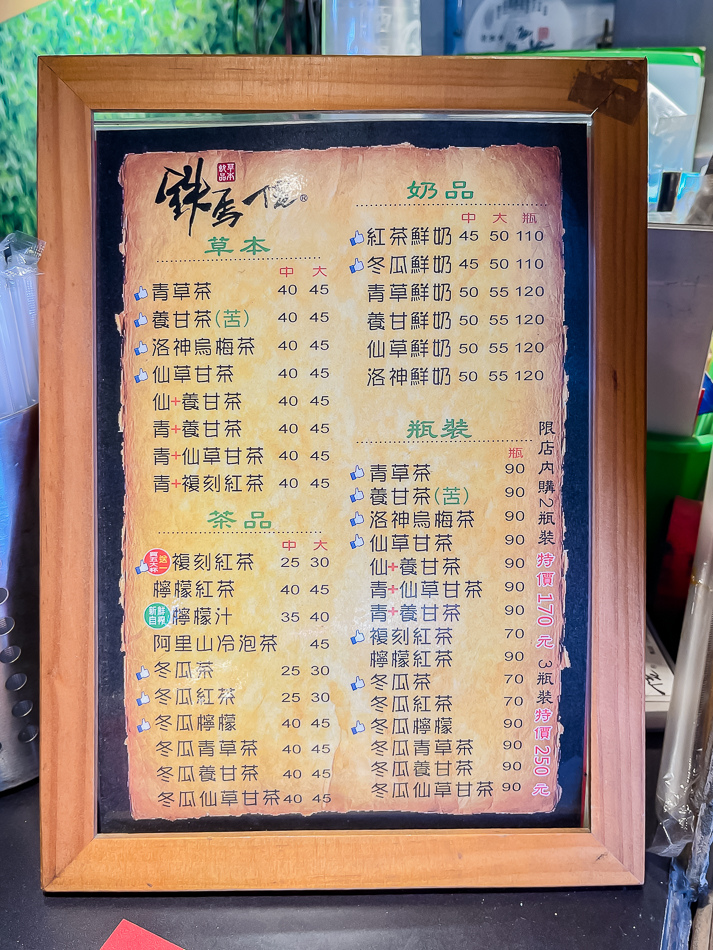 鉄馬伍®
草本飲品
草本
中 大
青草茶 40 45
養甘茶(苦) 40 45
洛神烏梅茶 40 45
仙草甘茶 40 45
仙+養甘茶 40 45
青+養甘茶 40 45
青+仙草甘茶 40 45
青+複刻紅茶 40 45
茶品
中 大
買五大杯送一 複刻紅茶 25 30
檸檬紅茶 40 45
新鮮自榨 檸檬汁 35 40
阿里山冷泡茶 45
冬瓜茶 25 30
冬瓜紅茶 25 30
冬瓜檸檬 40 45
冬瓜青草茶 40 45
冬瓜養甘茶 40 45
冬瓜仙草甘茶 40 45
奶品
中 大 瓶
紅茶鮮奶 45 50 110
冬瓜鮮奶 45 50 110
青草鮮奶 50 55 120
養甘鮮奶 50 55 120
仙草鮮奶 50 55 120
洛神鮮奶 50 55 120
瓶裝
瓶
青草茶 90
養甘茶(苦) 90
洛神烏梅茶 90
仙草甘茶 90
仙+養甘茶 90
青+仙草甘茶 90
青+養甘茶 90
複刻紅茶 70
檸檬紅茶 90
冬瓜茶 70
冬瓜紅茶 70
冬瓜檸檬 90
冬瓜青草茶 90
冬瓜養甘茶 90
冬瓜仙草甘茶 90
限店內購2瓶裝 特價170元 3瓶裝特價250元